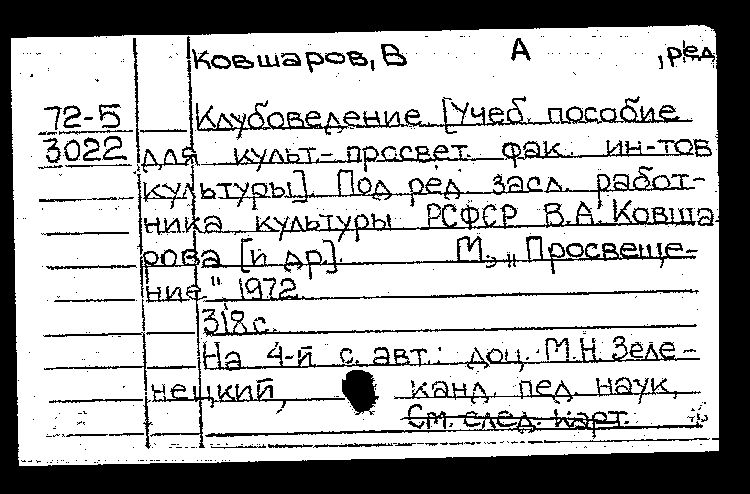 Ковшаров, В А , ред
72-5 Клубоведение. [Учеб. пособие
3022 для культ.-просвет. фак. ин-тов
культуры]. Под ред. засл. работ-
ника культуры РСФСР В.А. Ковша
рова [и др]. М., „Просвеще-
ние", 1972.
318 с.
На 4-й с. авт.: доц. М.Н. Зеле-
нецкий, канд. пед. наук,
См. след. карт.